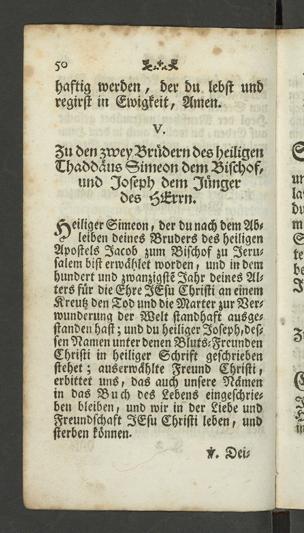 50
haftig werden, der du lebst und
regirst in Ewigkeit, Amen.
V.
Zu den zwey Brüdern des heiligen
Thaddäus Simeon dem Bischof,
und Joseph dem Jünger
des HErrn.
Heiliger Simeon, der du nach dem Ab-
leiben deines Bruders des heiligen
Apostels Jacob zum Bischof zu Jeru-
salem bist erwählet worden, und in dem
hundert und zwanzigste Jahr deines Al-
ters für die Ehre JEsu Christi an einem
Kreutz den Tod und die Marter zur Ver-
wunderung der Welt standhaft ausge-
standen hast; und du heiliger Joseph, des-
sen Namen unter denen Bluts-Freunden
Christi in heiliger Schrift geschrieben
stehet; auserwählte Freund Christi,
erbittet uns, das auch unsere Nämen
in das Buch des Lebens eingeschrie-
ben bleiben, und wir in der Liebe und
Freundschaft JEsu Christi leben, und
sterben können.
V. Dei-